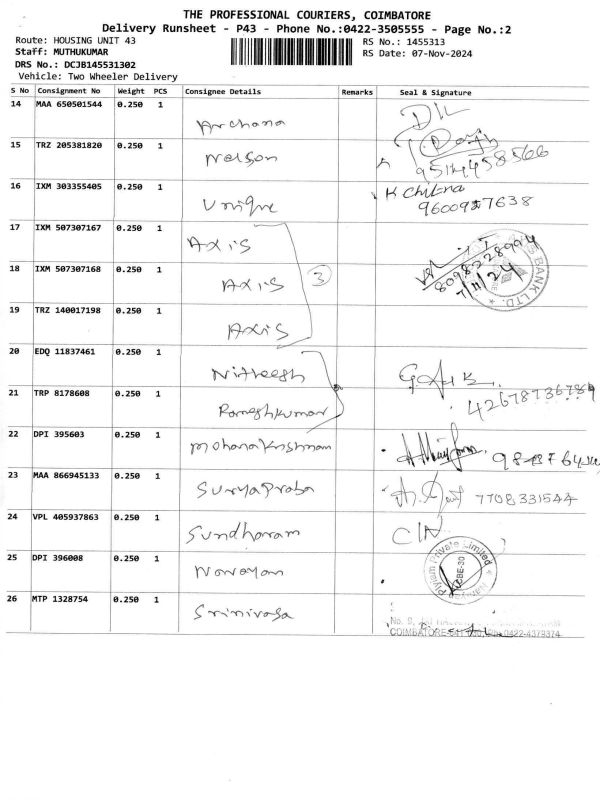 THE PROFESSIONAL COURIERS, COIMBATORE
Delivery Runsheet - P43 - Phone No.:0422-3505555 - Page No.:2
Route: HOUSING UNIT 43 RS No.: 1455313
Staff: MUTHUKUMAR RS Date: 07-Nov-2024
DRS No.: DCJB145531302
Vehicle: Two Wheeler Delivery
S No Consignment No Weight PCS Consignee Details Remarks Seal & Signature
14 MAA 650501544 0.250 1 Archana
15 TRZ 205381820 0.250 1 Nelson
16 IXM 303355405 0.250 1 Unique K Chitra
17 IXM 507307167 0.250 1 Axis
18 IXM 507307168 0.250 1 Axis 3 8098228994
7/11/24
BANK LTD.
19 TRZ 140017198 0.250 1 Axis
20 EDQ 11837461 0.250 1 Nitheesh
21 TRP 8178608 0.250 1 Rameshkumar
22 DPI 395603 0.250 1 Mohana Krishnan
23 MAA 866945133 0.250 1 Suryapraba 7708331544
24 VPL 405937863 0.250 1 Sundharam
25 DPI 396008 0.250 1 Narayan
Private Limited
CBE-30
26 MTP 1328754 0.250 1 Srinivasa
COIMBATORE 0422-4379374